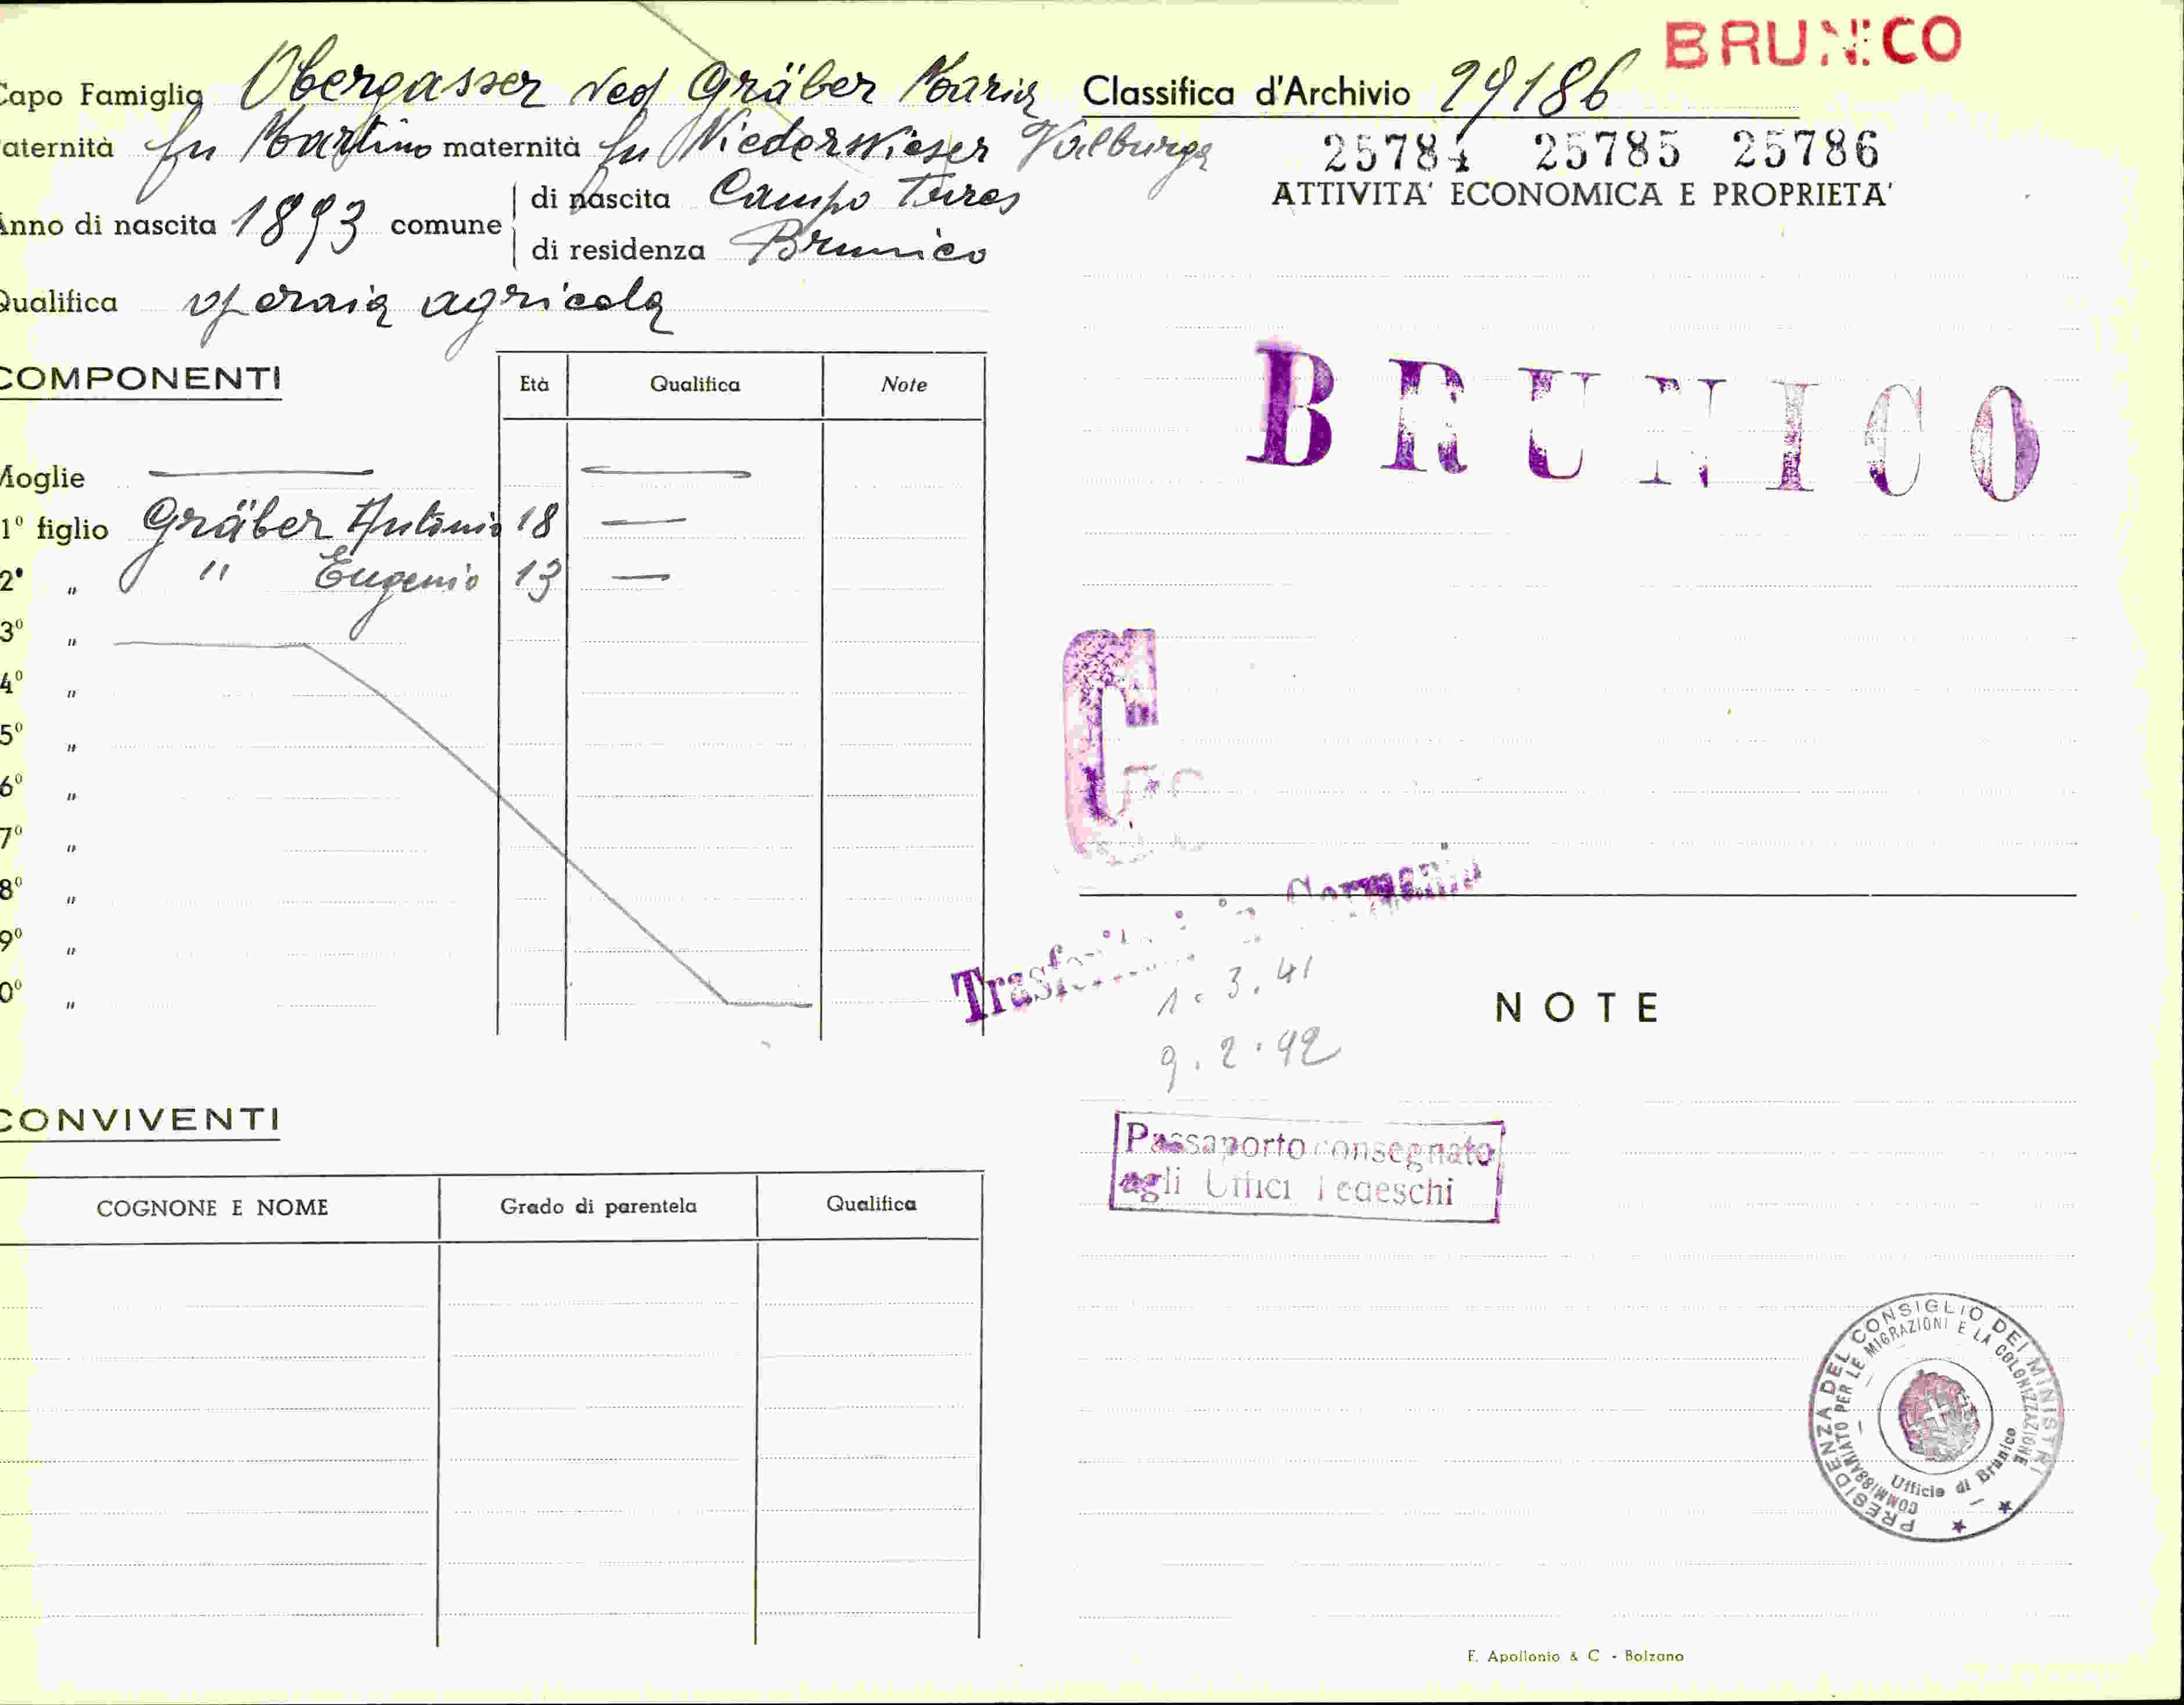 BRUNICO
Capo Famiglia Obergasser ved Gräber Maria Classifica d'Archivio 29186
aternità fu Martino maternità fu Niederwieser Valburga
25784 25785 25786
ATTIVITA' ECONOMICA E PROPRIETA'
Anno di nascita 1893 comune di nascita Campo Tures
di residenza Brunico
Qualifica operaia agricola
COMPONENTI
Età Qualifica Note
BRUNICO
Moglie
1º figlio Gräber Antonio 18
2º " " Eugenio 13
3º "
4º "
5º "
6º "
7º "
8º "
9º "
0º "
C
Trasferito in Germania
1.3.41
9.2.42
NOTE
CONVIVENTI
Passaporto consegnato
agli Uffici Tedeschi
COGNONE E NOME Grado di parentela Qualifica
PRESIDENZA DEL CONSIGLIO DEI MINISTRI
COMMISSARIATO PER LE MIGRAZIONI E LA COLONIZZAZIONE
Ufficio di Brunico
F. Apollonio & C - Bolzano